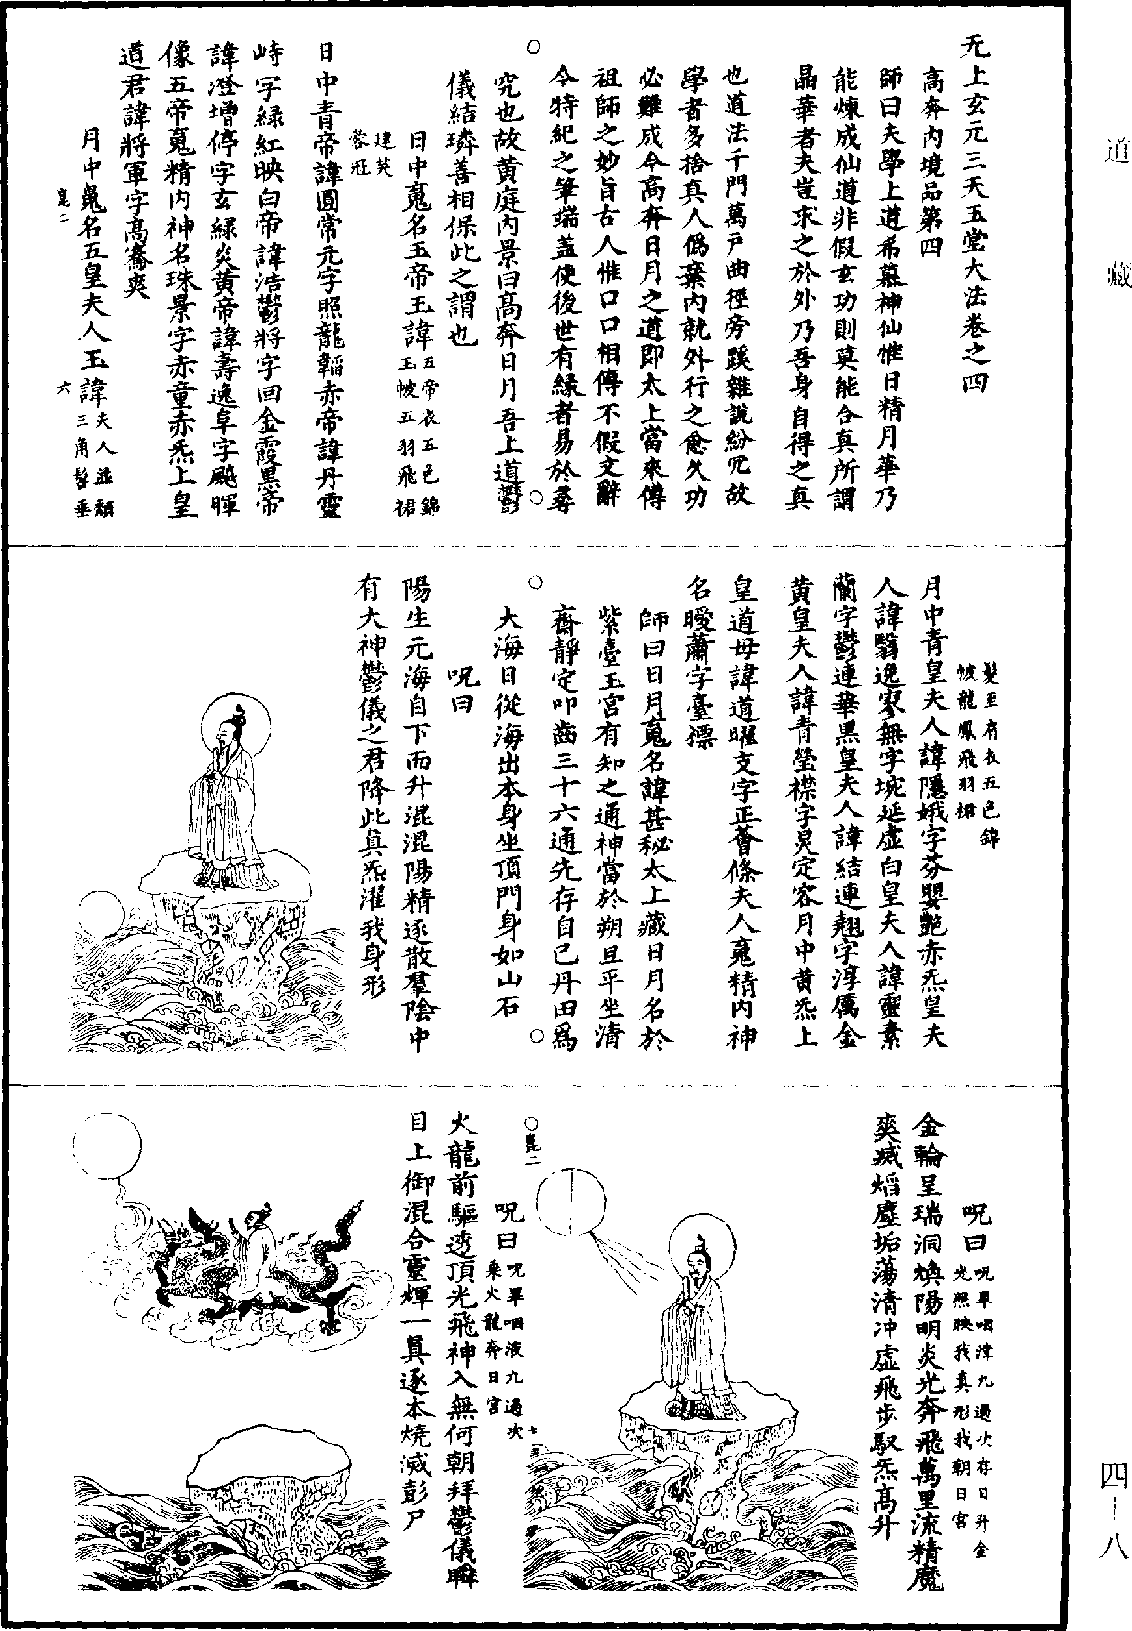 道藏
四-八
无上玄元三天玉堂大法卷之四
高奔內境品第四
師曰夫學上道希慕神仙惟日精月華乃
能煉成仙道非假玄功則莫能合真所謂
晶華者夫豈求之於外乃吾身自得之真
也道法千門萬戶曲徑旁蹊雜說紛冗故
學者多捨真人僞棄內就外行之愈久功
必難成今高奔日月之道即太上當來傳
祖師之妙旨古人惟口口相傳不假文辭
今特紀之筆端蓋使後世有緣者易於尋
究也故黃庭內景曰高奔日月吾上道鬱
儀結璘善相保此之謂也
日中䰟名玉帝玉諱
五帝衣五色錦
玉帔五羽飛裙
建芙
蓉冠
日中青帝諱圓常元字照龍韜赤帝諱丹靈
峙字綠紅映白帝諱浩鬱將字回金霞黑帝
諱澄增停字玄綠炎黃帝諱壽逸阜字飈暉
像五帝䰟精內神名珠景字赤童赤炁上皇
道君諱將軍字高騫爽
月中䰟名五皇夫人玉諱
夫人並頵
三角髻垂
髮至肩衣五色錦
帔龍鳳飛羽裙
月中青皇夫人諱隱娥字芬嬰艷赤炁皇夫
人諱翳逸寥無字埦延虛白皇夫人諱靈素
蘭字鬱連華黑皇夫人諱結連翹字淳厲金
黃皇夫人諱青瑩襟字炅定容月中黃炁上
皇道母諱道曜支字正薈條夫人䰟精內神
名曖蕭字臺摽
師曰日月䰟名諱甚秘太上藏日月名於
紫臺玉宮有知之通神當於朔旦平坐清
齋靜定叩齒三十六通先存自己丹田為
大海日從海出本身坐頂門身如山石
呪曰
陽生元海自下而升混混陽精逐散羣陰中
有大神鬱儀之君降此真炁濯我身形
呪曰
呪畢咽津九過次存日升金
光照映我真形我朝日宮
金輪呈瑞洞煥陽明炎光奔飛萬里流精魔
爽滅熖塵垢蕩清冲虛飛步馭炁高升
呪曰
呪畢咽液九過次
乘火龍奔日宮
火龍前驅透頂光飛神入無何朝拜鬱儀瞬
目上御混合靈輝一真逐本燒滅彭尸